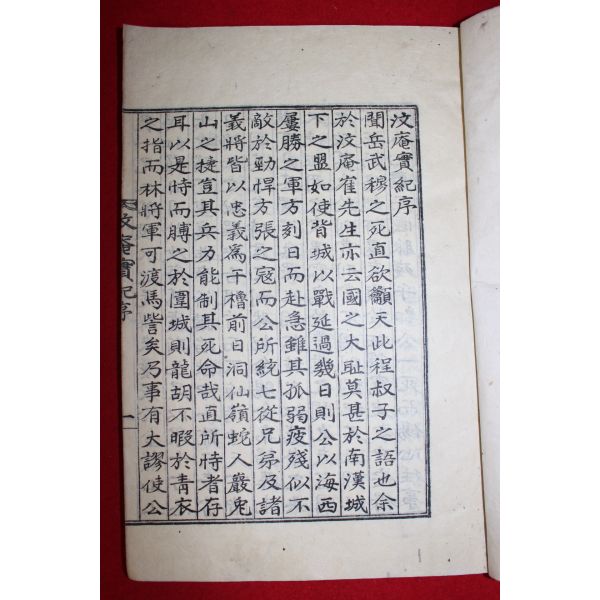 汶庵實紀序
聞岳武穆之死直欲籲天此程叔子之語也余
於汶庵崔先生亦云國之大恥莫甚於南漢城
下之盟如使背城以戰延過幾日則公以海西
屢勝之軍方刻日而赴急雖其孤弱疲殘似不
敵於勁悍方張之寇而公所統七從兄弟及諸
義將皆以忠義爲干櫓前日洞仙嶺蛇人巖兎
山之捷豈其兵力能制其死命哉直所恃者存
耳以是恃而膊之於圍城則龍胡不暇於靑衣
之指而林將軍可渡馬訾矣乃事有大謬使公
汶庵實紀序
一